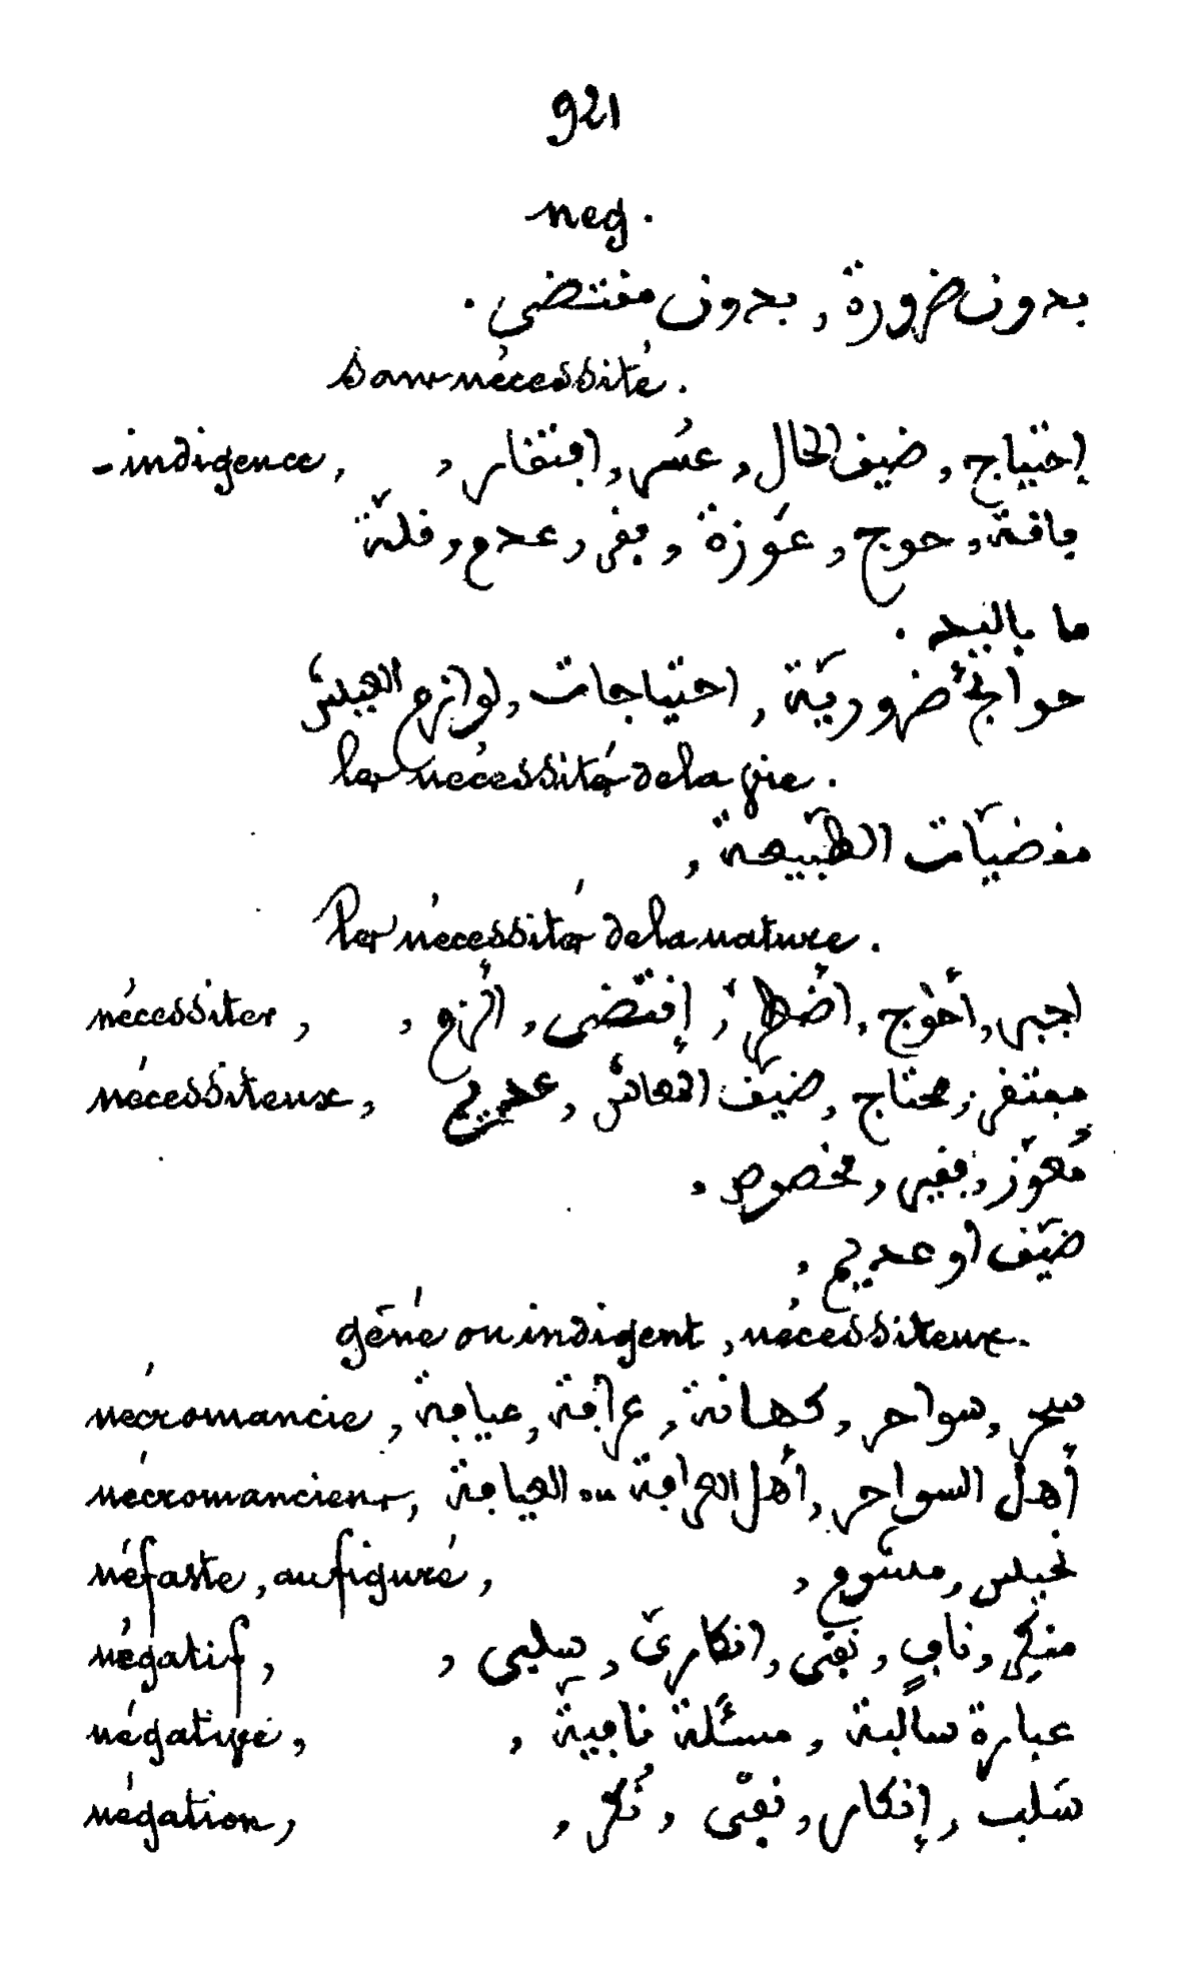 921
neg.
بدون ضرورة, بدون مقتضى.
sans nécessité.
- indigence, إحتياج, ضيف الحال, عسُر, افتقار,
فاقة, حوج, عَوزة, فقر, عدم, قلّة
ما باليد.
حوائج ضروريّة, احتياجات, لوازم العيش
les nécessités de la vie.
مقضيّات الطبيعة,
les nécessités de la nature.
nécessiter, اجبر, أحْوج, اضطرّ, إقتضى, ألزم,
nécessiteux, مفتقر, محتاج, ضيّف المعاش, عديم
مُعوَز, فقير, مخصوص,
ضيّف او عديم,
gêné ou indigent, nécessiteux.
nécromancie, سحر, سواحر, كهانة, عرافة, عيافة,
nécromanciens, أهل السواحر, أهل العرافة ou العيافة
néfaste, au figuré, نحيس, مشوم,
négatif, منكر, نافٍ, نفى, انكارىّ, سلبى,
négative, عبارة سالبة, مسئلة نافية,
négation, سَلب, إنكار, نفى, نُكر,